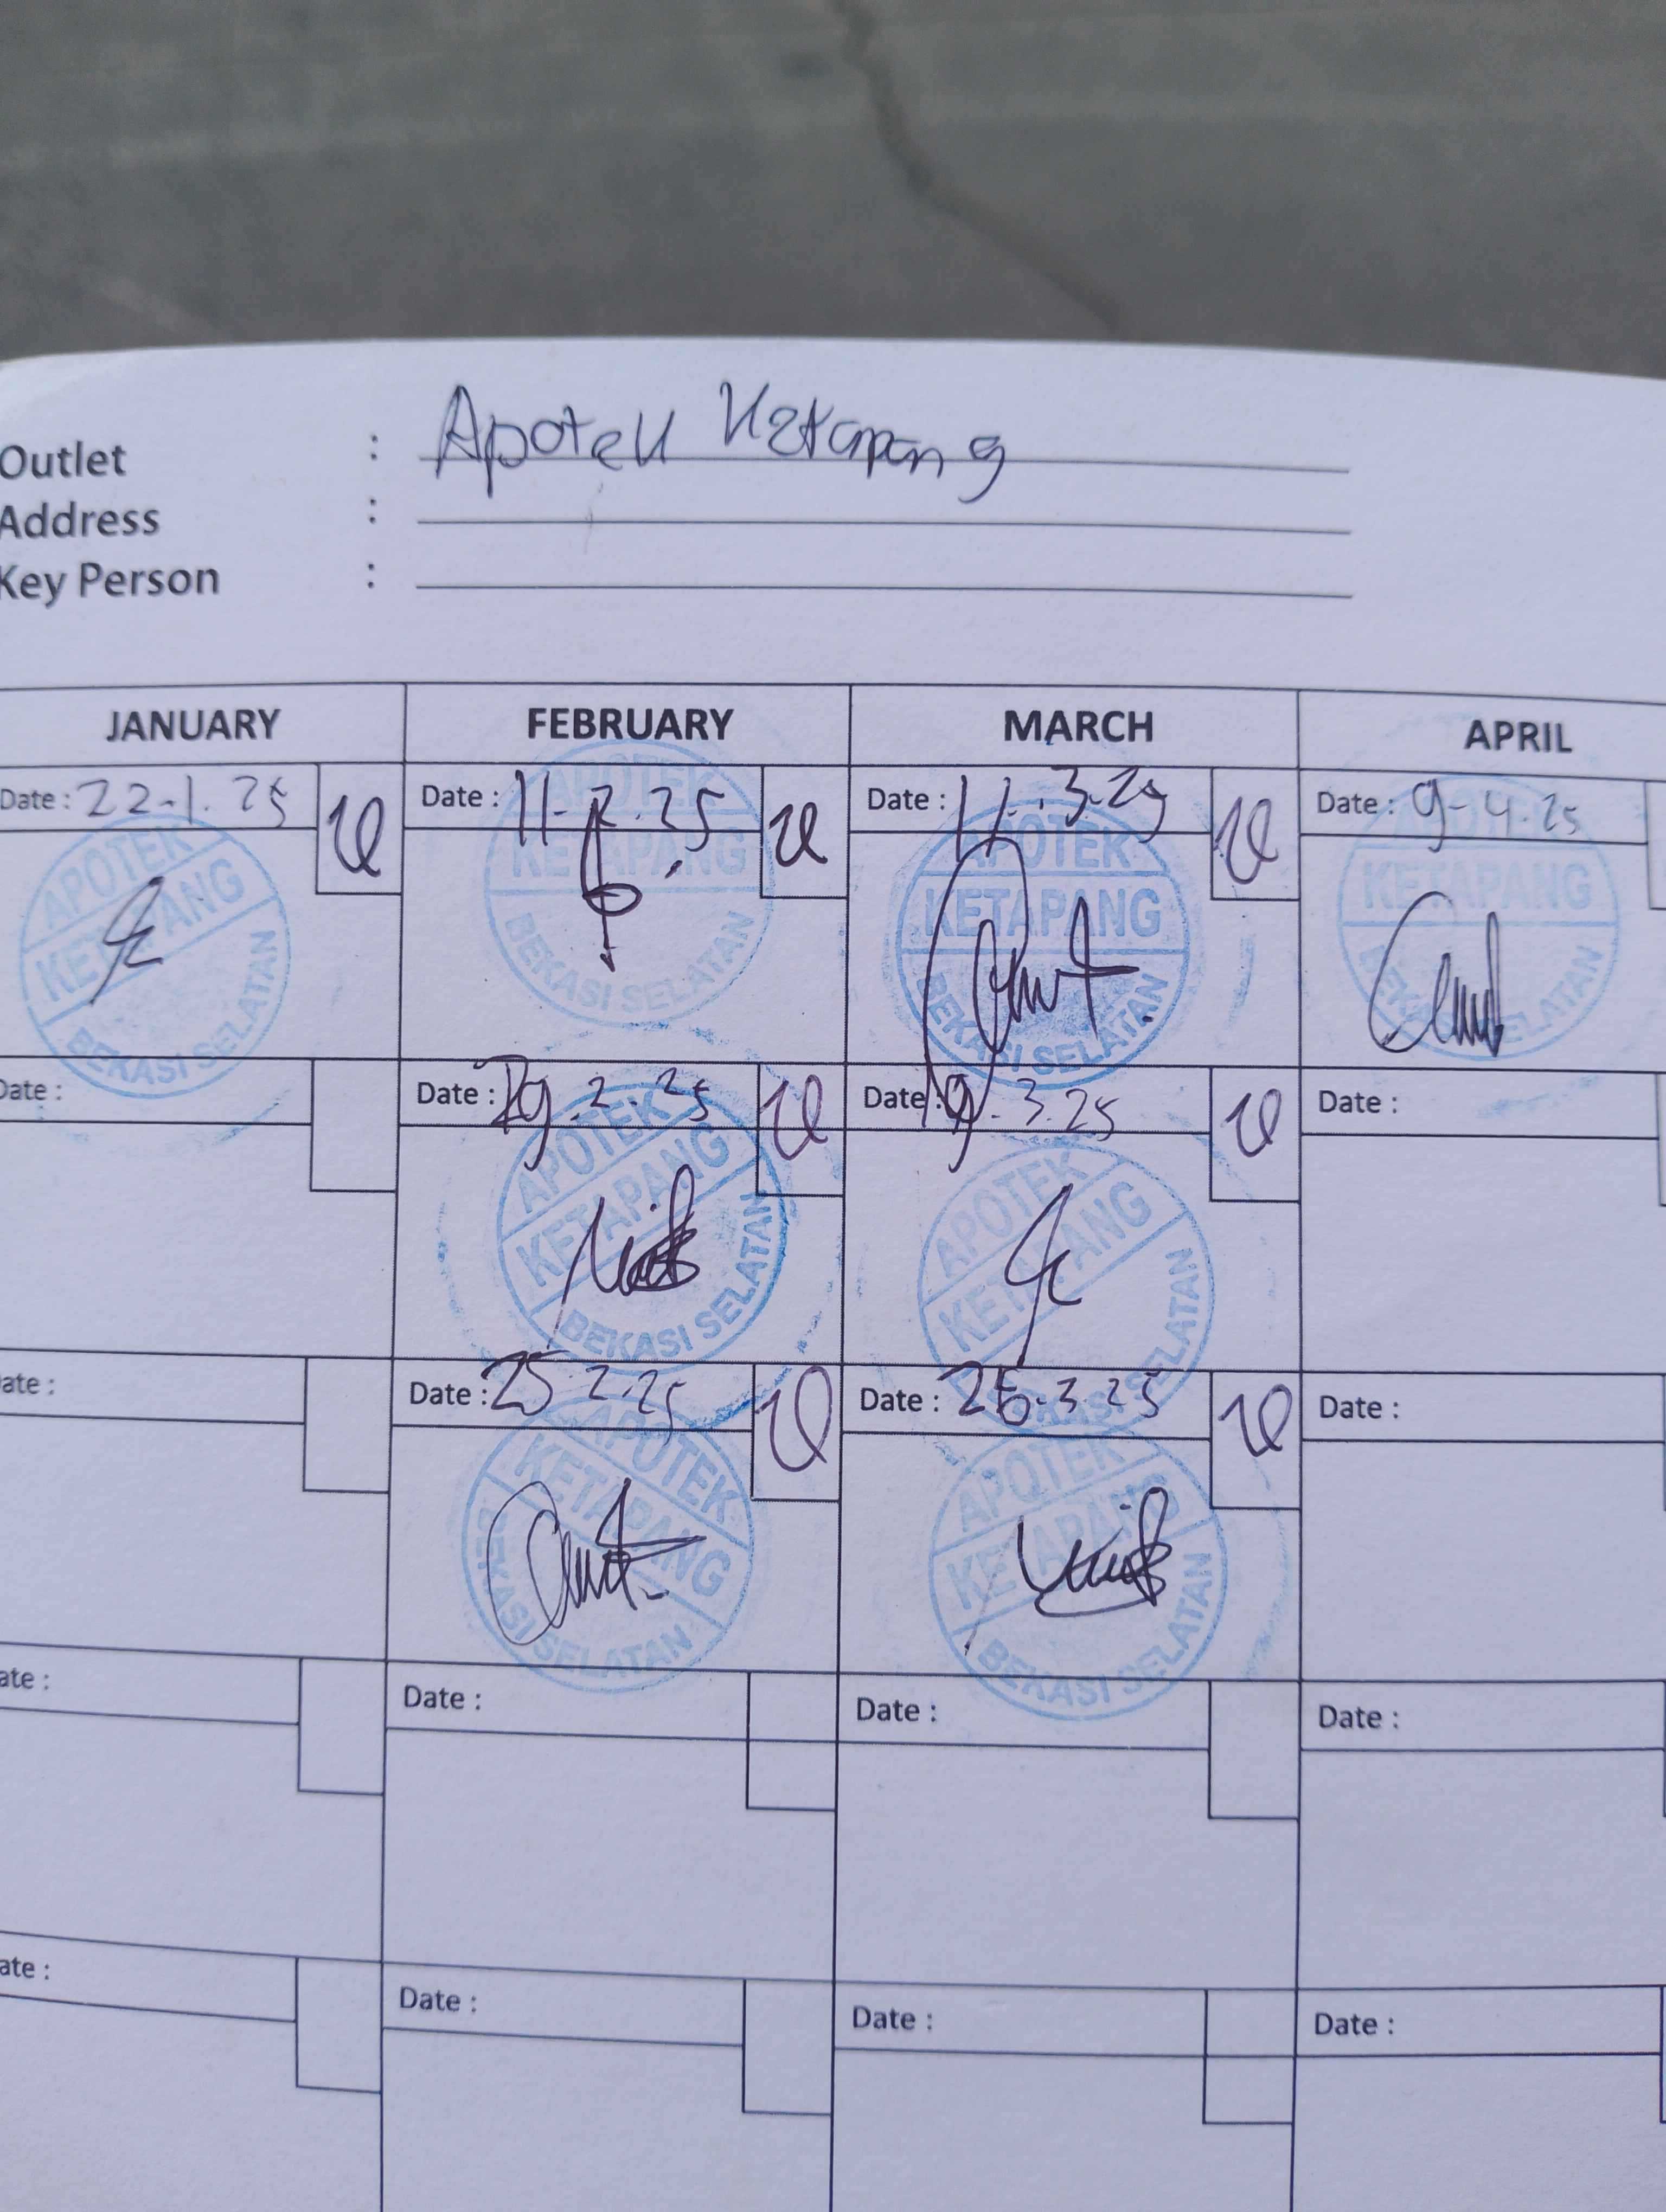 Outlet : Apotek Ketapang
Address :
Key Person :
JANUARY FEBRUARY MARCH APRIL
Date : 22-1.25 Date : 11-2.25 Date : 11.3.25 Date : 9-4.25
APOTEK KETAPANG BEKASI SELATAN
APOTEK KETAPANG BEKASI SELATAN
APOTEK KETAPANG BEKASI SELATAN
APOTEK KETAPANG BEKASI SELATAN
Date : Date : .2.25 Date : .3.25 Date :
APOTEK KETAPANG BEKASI SELATAN
APOTEK KETAPANG BEKASI SELATAN
ate : Date : 25 2.25 Date : 26.3.25 Date :
APOTEK KETAPANG BEKASI SELATAN
APOTEK KETAPANG BEKASI SELATAN
ate : Date : Date : Date :
ate : Date : Date : Date :